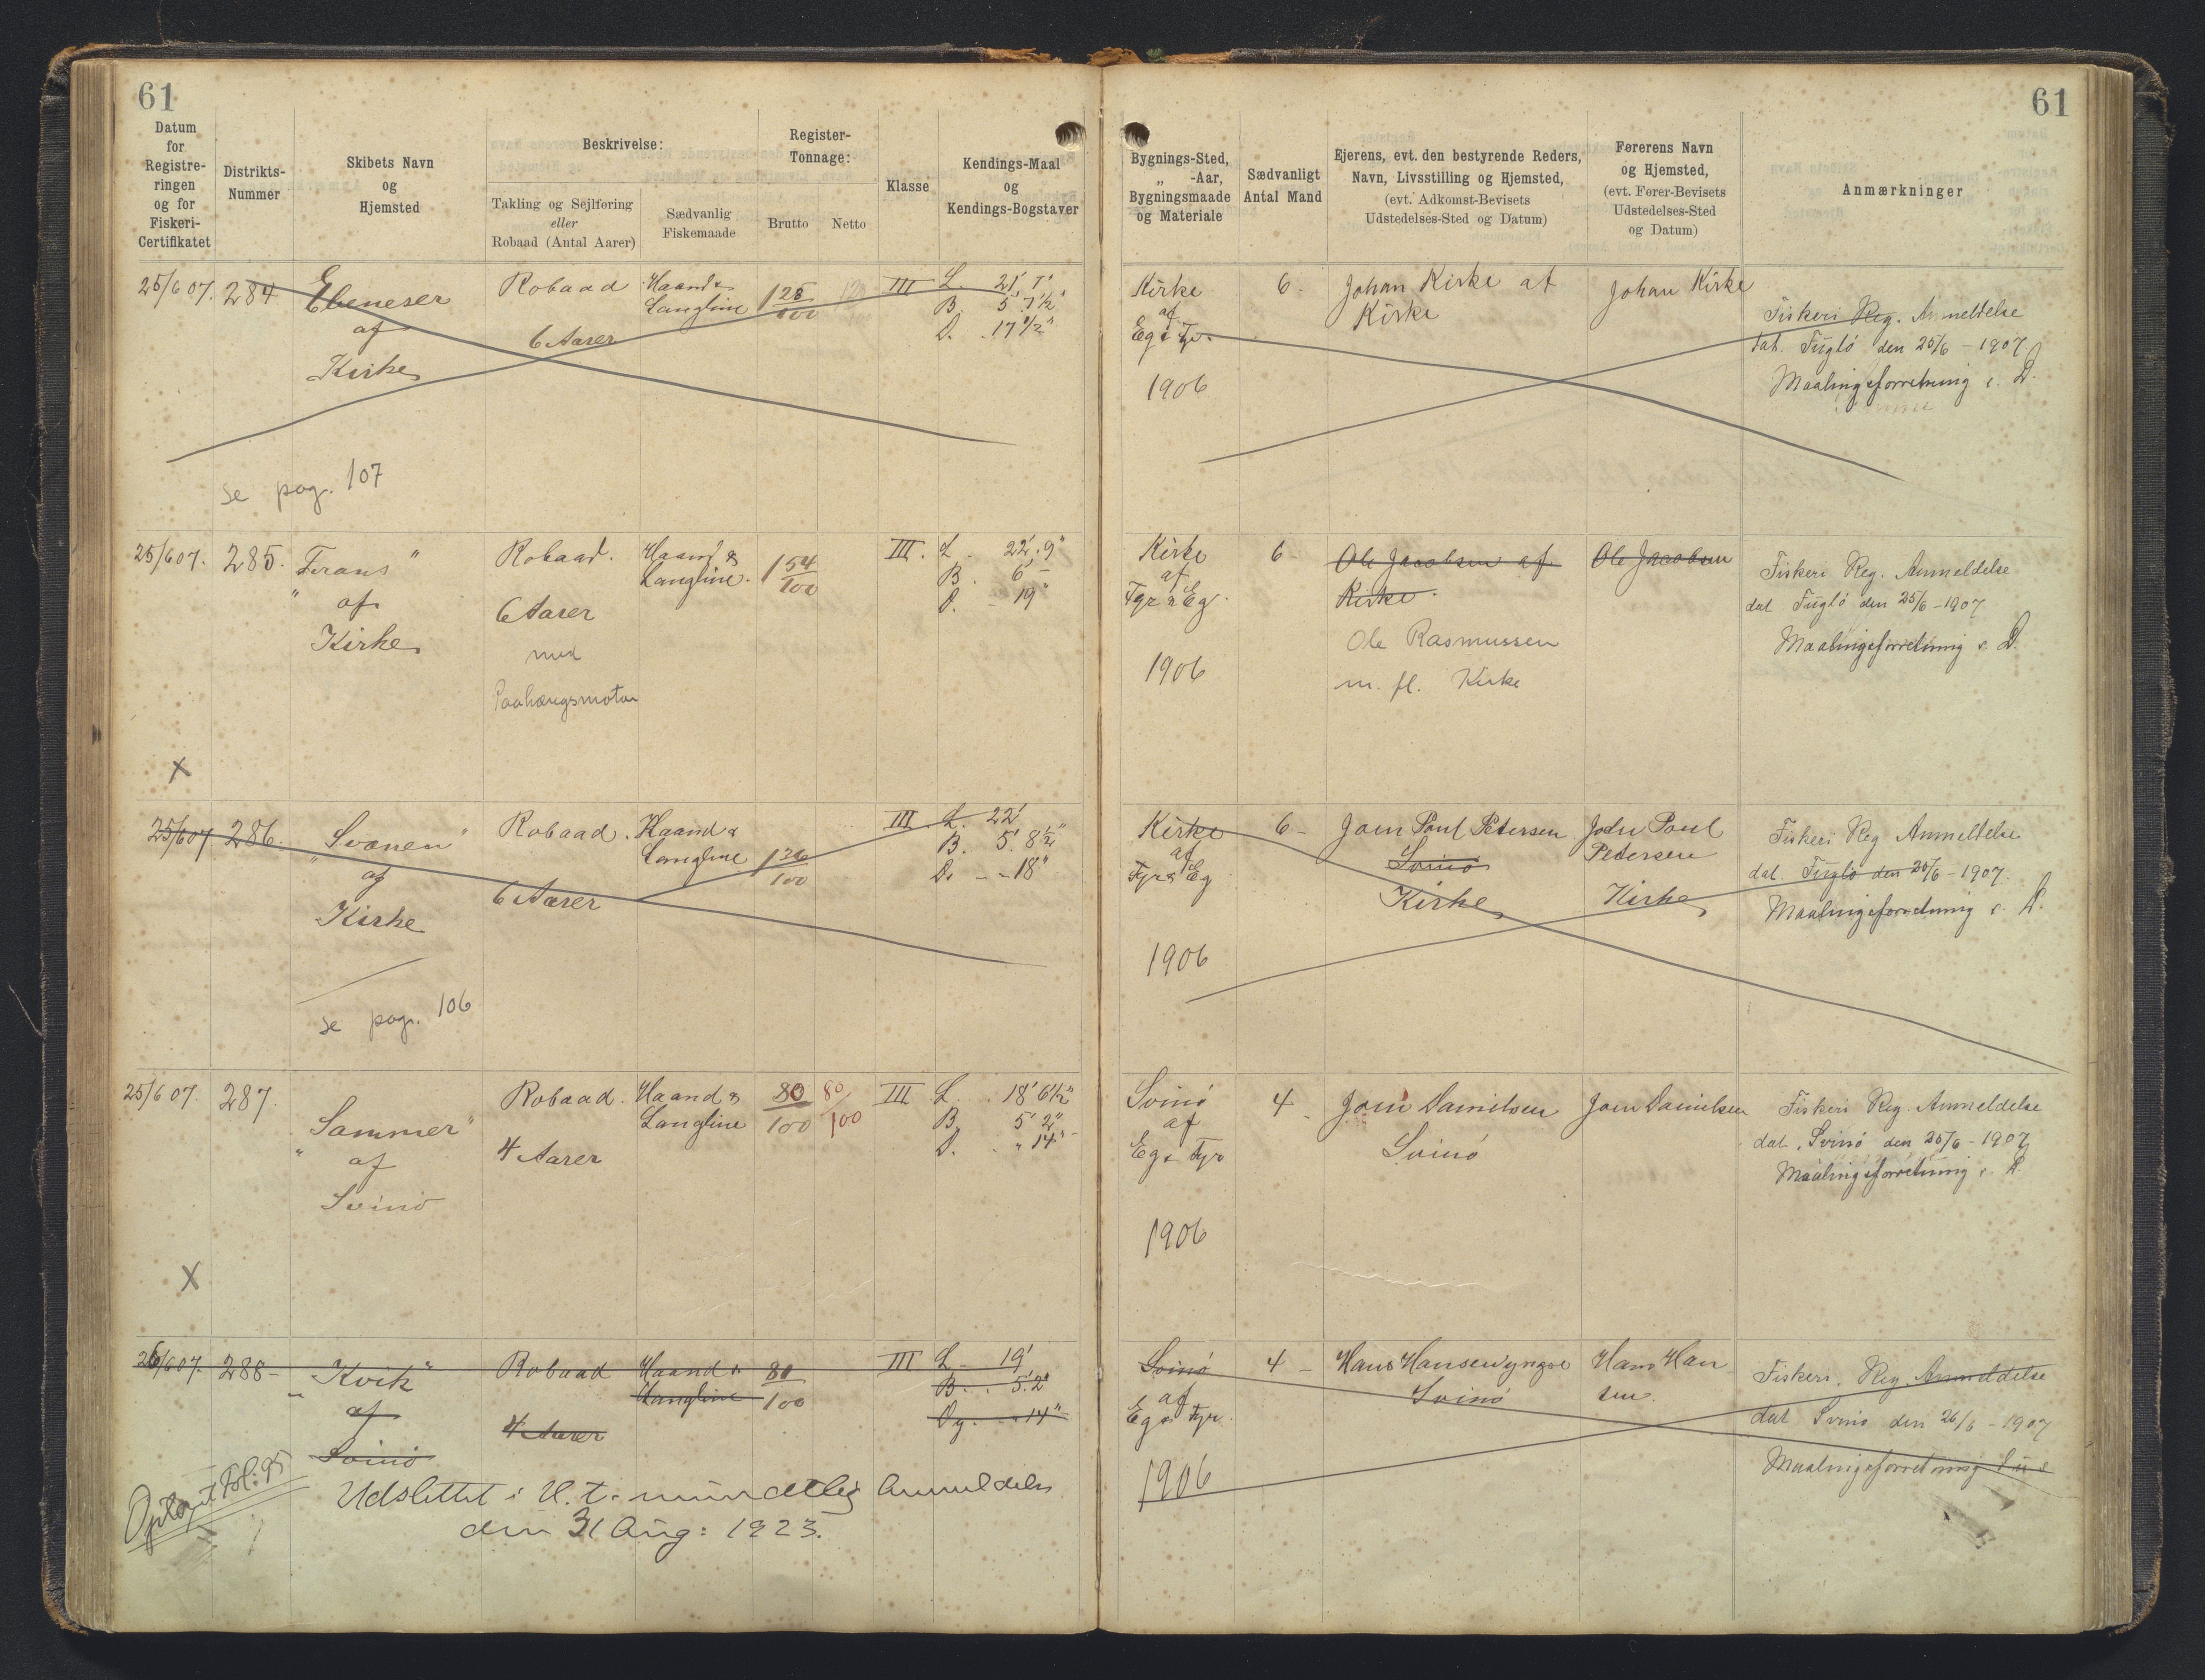 61
61
Datum
for
Registre-
ringen
og for
Fiskeri-
Certifikatet
Distrikts-
Nummer
Skibets Navn
og
Hjemsted
Beskrivelse:
Takling og Sejlføring
eller
Robaad (Antal Aarer)
Sædvanlig
Fiskemaade
Register-
Tonnage:
Brutto
Netto
Klasse
Kendings-Maal
og
Kendings-Bogstaver
Bygnings-Sted,
„ -Aar,
Bygningsmaade
og Materiale
Sædvanligt
Antal Mand
Ejerens, evt. den bestyrende Reders,
Navn, Livsstilling og Hjemsted,
(evt. Adkomst-Bevisets
Udstedelses-Sted og Datum)
Førerens Navn
og Hjemsted,
(evt. Fører-Bevisets
Udstedelses-Sted
og Datum)
Anmærkninger
25/6 07.
284
Ebeneser
af
Kirke
Robaad
6 Aarer
Haand &
Langline
1 28/100
III
L. 21' 7"
B. 5' 7½"
D. 17½"
se pag. 107
Kirke
af
Eg & Fyr.
1906
6.
Johan Kirke af
Kirke
Johan Kirke
Fiskeri Reg. Anmeldelse
dat. Fuglö den 25/6 - 1907
Maalingsforretning s. D.
25/6 07.
285.
Frans"
" af
Kirke
Robaad.
6 Aarer
med
Paahængsmotor
Haand &
Langline.
1 54/100
III.
L. 22' 9"
B. 6' -
D. - 19"
X
Kirke
af
Fyr & Eg.
1906
6-
Ole Jacobsen af
Kirke.
Ole Rasmussen
m. fl. Kirke
Ole Jacobsen
Fiskeri Reg. Anmeldelse
dat Fuglö den 25/6 - 1907
Maalingsforretning s. D.
25/6 07
286.
Svanen"
" af
Kirke
Robaad.
6 Aarer
Haand &
Langline
1 36/100
III.
L. 22'
B. 5' 8½"
D. - - 18"
se pag. 106
Kirke
af
Fyr & Eg
1906
6-
Joen Poul Petersen
Svinö
Kirke
Joen Poul
Petersen
Kirke
Fiskeri Reg Anmeldelse
dat. Fuglö den 25/6 - 1907.
Maalingsforretning s. D.
25/6 07.
287.
Sammer"
" af
Svinö
Robaad.
4 Aarer
Haand &
Langline
80/100
80/100
III
L. 18' 6½"
B. 5' 2"
D. " 14"
X
Svinö
af
Eg & Fyr
1906
4
Joen Danielsen
Svinö
Joen Danielsen
Fiskeri Reg. Anmeldelse
dat. Svinö den 25/6 - 1907
Maalingsforretning s. D.
26/6 07.
288-
Kvik"
" af
Svinö
Robaad
4 Aarer
Haand &
Langline
80/100
III
L - 19'
B. . 5' 2"
Dy. - " 14"
Optaget Fol: 95
Udslettet i H. t. mundtlig Anmeldelse
den 31 Aug: 1923.
Svinö
af
Eg & Fyr.
1906
4 -
Hans Hansen yngre
Svinö
Hans Han
sen.
Fiskeri. Reg. Anmeldelse
dat Svinö den 26/6 - 1907
Maalingsforretning